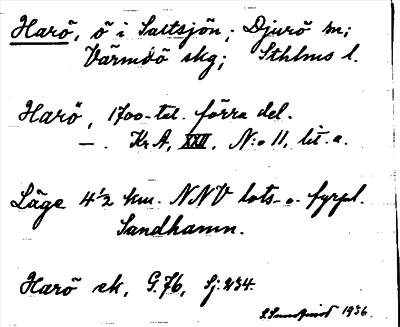 Harö, ö i Saltsjön; Djurö sn;
Värmdö skg; Sthlms l.
Harö, 1700-tal. förra del.
— . Kr A, XXII, N:o 11, lit. a.
Läge 4 1/2 km. NNV lots- o. fyrpl.
Sandhamn.
Harö ek, G.76, Sj: 234.
1936.